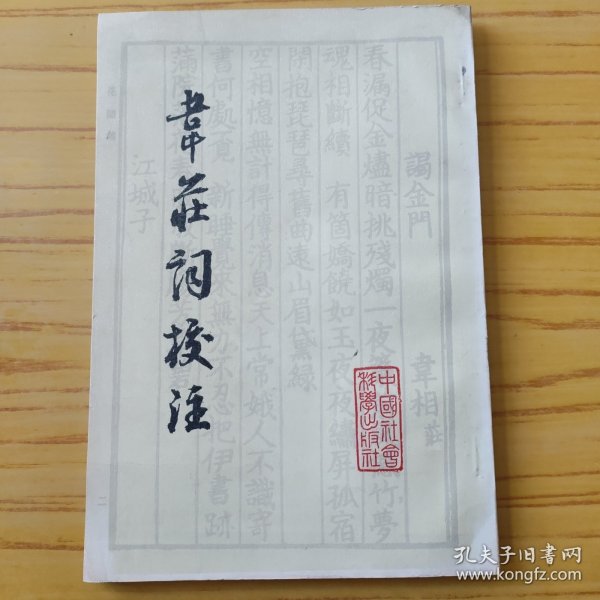 韋莊詞校注
謁金門 韋相莊
春漏促金燼暗挑殘燭一夜 竹夢
魂相斷續 有箇嬌饒如玉夜夜繡屏孤宿
閑抱琵琶尋舊曲遠山眉黛綠
空相憶無計得傳消息天上常娥人不識寄
書何處覓 新睡覺來無力不忍把伊書跡
滿院
江城子
二
中國社會
科學出版社
孔夫子旧书网
www.kongfz.com